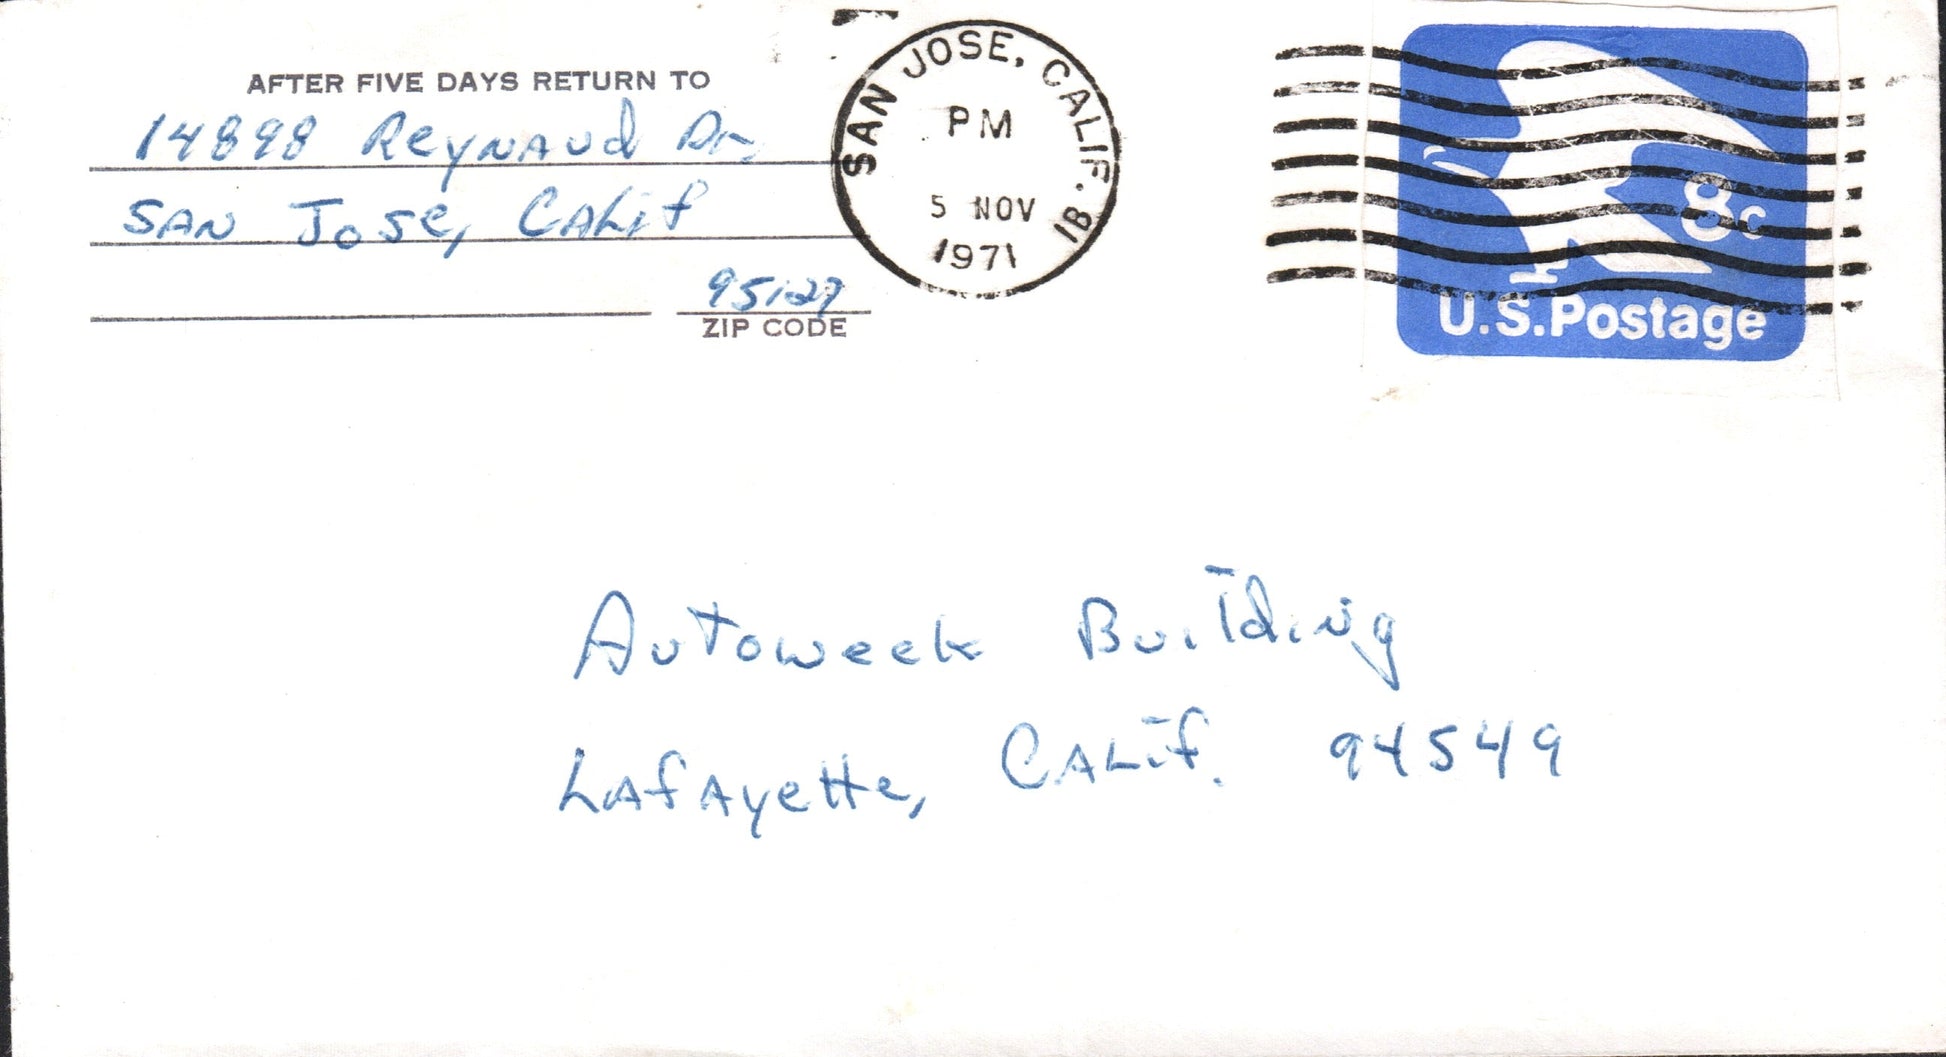 AFTER FIVE DAYS RETURN TO
14898 Reynaud Dr.
San Jose, Calif
95127
ZIP CODE
SAN JOSE, CALIF. 1B
PM
5 NOV
1971
8c
U.S. Postage
Autoweek Building
Lafayette, Calif. 94549